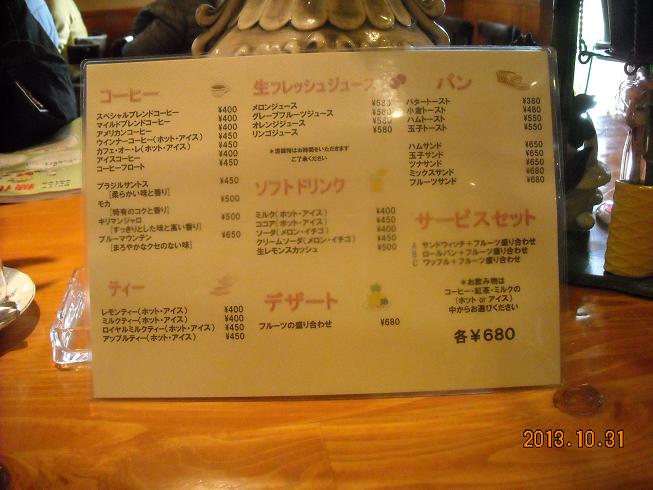 コーヒー
スペシャルブレンドコーヒー ¥400
マイルドブレンドコーヒー ¥400
アメリカンコーヒー ¥400
ウインナーコーヒー(ホット・アイス) ¥450
カフェ・オ・レ(ホット・アイス) ¥450
アイスコーヒー ¥400
コーヒーフロート ¥450
ブラジルサントス ¥450
[柔らかい味と香り]
モカ ¥500
[特有のコクと香り]
キリマンジャロ ¥500
[すっきりとした味と高い香り]
ブルーマウンテン ¥650
[まろやかなクセのない味]
ティー
レモンティー(ホット・アイス) ¥400
ミルクティー(ホット・アイス) ¥400
ロイヤルミルクティー(ホット・アイス) ¥450
アップルティー(ホット・アイス) ¥450
生フレッシュジュース
メロンジュース ¥580
グレープフルーツジュース ¥580
オレンジジュース ¥580
リンゴジュース ¥580
はお時間をいただきます
ご了承ください
ソフトドリンク
ミルク(ホット・アイス) ¥400
ココア(ホット・アイス) ¥450
ソーダ(メロン・イチゴ) ¥400
クリームソーダ(メロン・イチゴ) ¥450
生レモンスカッシュ ¥500
デザート
フルーツの盛り合わせ ¥680
パン
バタートースト ¥380
小倉トースト ¥480
ハムトースト ¥550
玉子トースト ¥550
ハムサンド ¥650
玉子サンド ¥650
ツナサンド ¥650
ミックスサンド ¥680
フルーツサンド ¥680
サービスセット
A サンドウィッチ+フルーツ盛り合わせ
B ロールパン+フルーツ盛り合わせ
C ワッフル+フルーツ盛り合わせ
＊お飲み物は
コーヒー・紅茶・ミルクの
(ホット or アイス)
中からお選びください
各¥680
2013.10.31